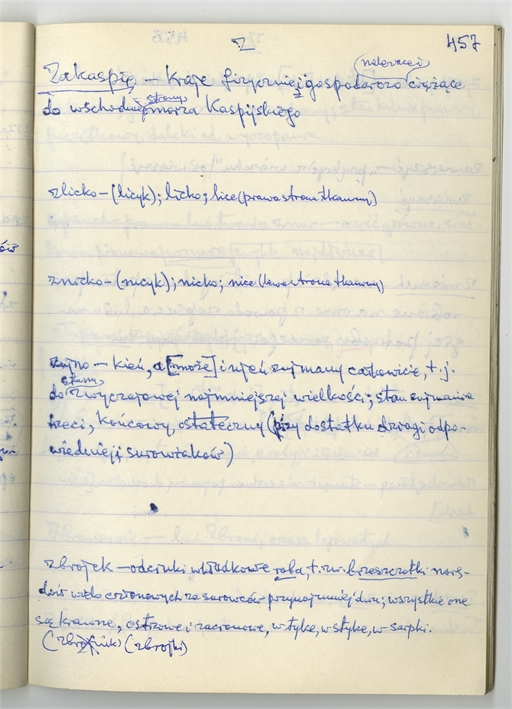 Z
457
należące i
Zakaspię – Kraje fizycznie i gospodarczo ciążące
strony
do wschodniej morza Kaspijskiego
zlicko – (licyk); licko; lice (prawa strona tkaniny)
znicko – (nicyk); nicko; nice (lewa strona tkaniny)
– kień, a [może] i rdzeń zujmany całkowicie, t.j.
stanu
do zwyczajowej najmniejszej wielkości; stan zujmania
trzeci, końcowy, ostateczny (przy dostatku drogi odpo-
wiedniej i surowiaków)
zbrojek – odcinki wkładkowe rąba, t. zw. brzeszczotki narę-
dziów wielo członowych ze surowców przynajmniej dwu; wszystkie one
są krawne, ostrzowe i zadrowne, w tyke, w styke, w sarpki.
(zbrojniki) (zbrojki)